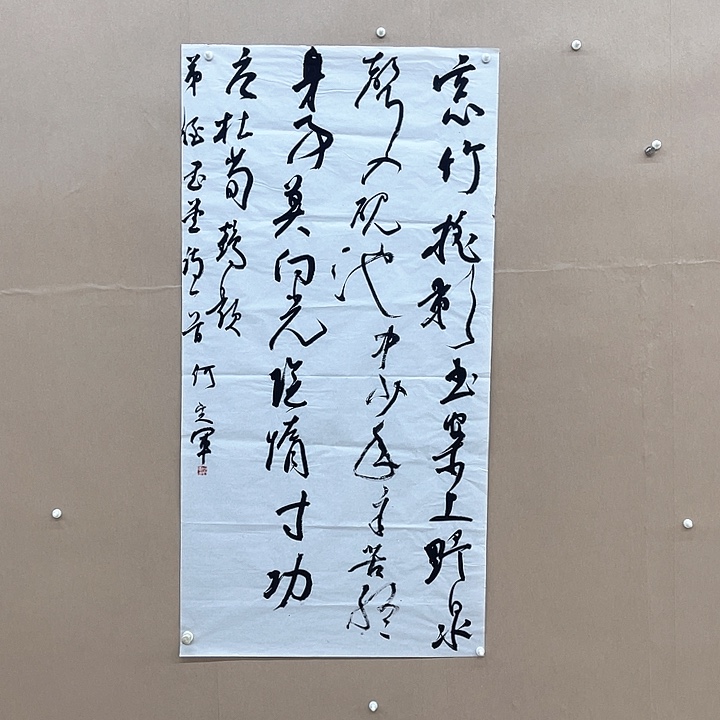 窓竹摇影书案上野泉
声入砚池中少年辛苦终
身事莫向光阴惰寸功
唐杜荀鹤题
弟侄书堂诗一首 何
军